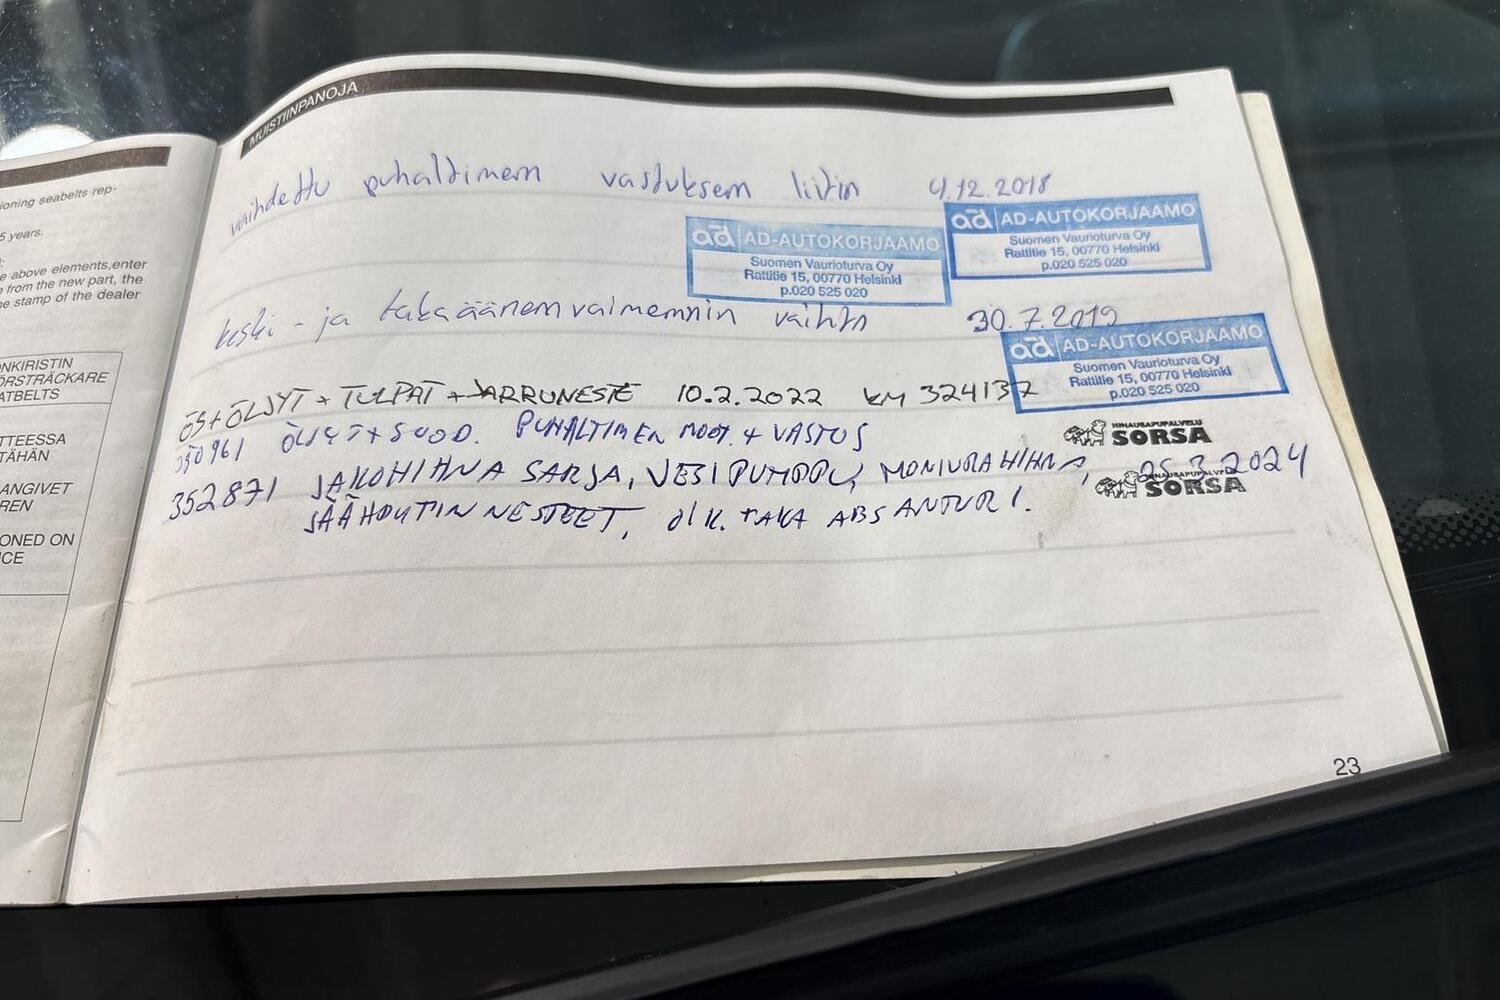 ioning seabelts rep-
5 years.
e above elements,enter
e from the new part, the
he stamp of the dealer
NKIRISTIN
ÖRSTRÄCKARE
ATBELTS
TTEESSA
TÄHÄN
ANGIVET
REN
IONED ON
ICE
MUISTIINPANOJA
vaihdettu puhaltimem vastuksem liitin 4.12.2018
ad AD-AUTOKORJAAMO
Suomen Vaurioturva Oy
Rattitie 15, 00770 Helsinki
p.020 525 020
ad AD-AUTOKORJAAMO
Suomen Vaurioturva Oy
Rattitie 15, 00770 Helsinki
p.020 525 020
keski - ja takaäänemvaimemnin vaihto 30.7.2019
ad AD-AUTOKORJAAMO
Suomen Vaurioturva Oy
Rattitie 15, 00770 Helsinki
p.020 525 020
ÖS+ÖLJYT + TULPAT + JARRUNESTE 10.2.2022 KM 324137
350961 ÖLJYT+SUOD. PUHALTIMEN MOOT. + VASTUS
HINAUSAPUPALVELU
SORSA
352871 JAKOHIHNA SARJA, VESIPUMPPU, MONIURAHIHNA, 25.3.2024
HINAUSAPUPALVELU
SORSA
JÄÄHDYTIN NESTEET, OIK. TAKA ABS ANTURI.
23